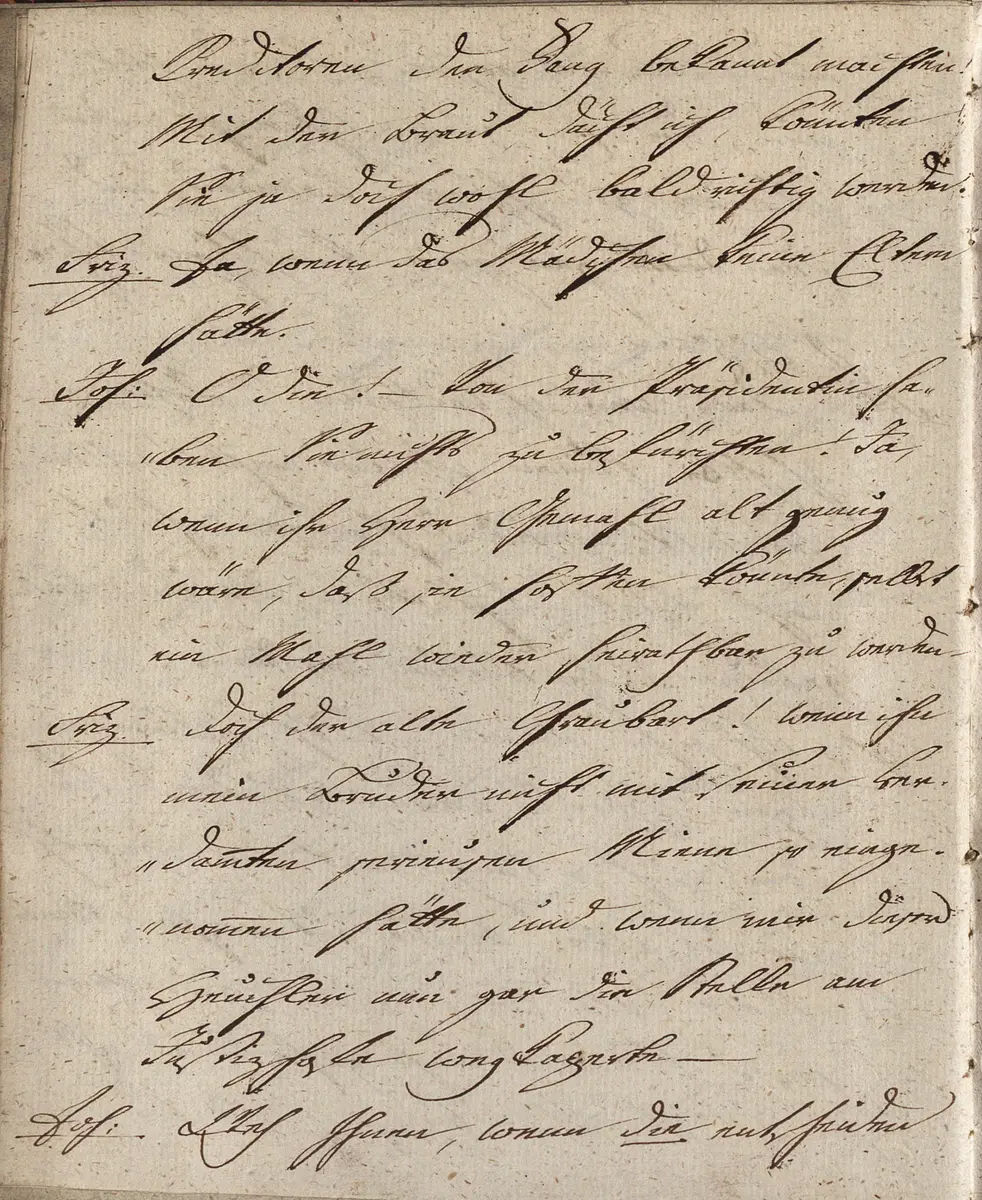 Creditoren den Gang bekannt machten!
Mit der Braut dächt ich, könnten
Sie ja doch wohl bald richtig werden.
Friz. Ja, wenn das Mädchen keine Eltern
hätte.
Joh: O die! – Von der Präsidentin ha-
„ben Sie nichts zu befürchten! Ja,
wenn ihr Herr Gemahl alt genug
wäre, daß sie hoffen könnte, selbst
ein Mahl wieder heirathbar zu werden –
Friz. Doch der alte Graubart! wenn ihn
mein Bruder nicht mit seiner ver-
„dam̅ten serieusen Miene so einge-
„nom̅en hätte, und wenn mir dieser
Heuchler nun gar die Stelle am
Justizhofe wegkaperte –
Joh: Weh Ihnen, wenn die entscheiden